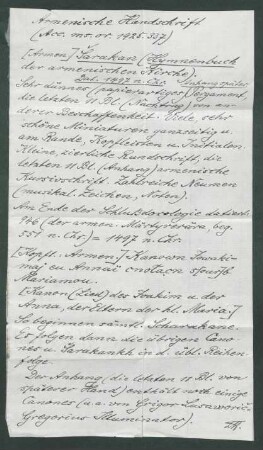 Armenische Handschrift
(Acc. ms. or. 1928.537)
[Armen.] Šarakan (Hymnenbuch
der armenischen Kirche).
Dat. 1497 n. Chr. Anhang später
Sehr dünner (papierartiger) Pergament,
die letzten 11 Bl. (Nachtrag) von an-
derer Beschaffenheit. Viele, sehr
schöne Miniaturen ganzseitig u.
am Rande, Kopfleisten u. Initialen.
Kleine, zierliche Rundschrift, die
letzten 11 Bl. (Anhang) armenische
Kursivschrift. Zahlreiche Neumen
(musikal. Zeichen, Noten).
Am Ende der Schlußdoxologie datiert:
946 (der armen. Märtyrerära, beg.
551 n. Chr.) = 1497 n. Chr.
[Kopft. Armen.:] Kanon Iowaki-
maj eu Annai
Mariamou.
[Kanon (Lied) des Joakim u. der
Anna, der Eltern der hl. Maria.]
So beginnen sämtl. Scharakane.
Es folgen dann die übrigen Cano-
nes u. Sarakankh in d. übl. Reihen-
folge.
Der Anhang (die letzten 11 Bl. von
späterer Hand) enthält noch einige
Canones (u. a. von Grigor Lusaworič-
Gregorius Illuminator).